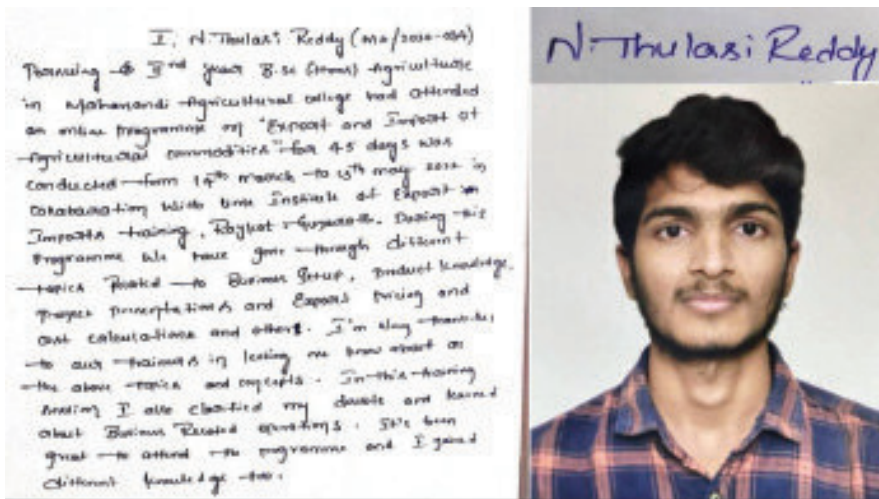 I, N. Thulasi Reddy (MA/2020-054)
Pursuing IInd year B.Sc (Hons) Agriculture
in Mahanandi Agricultural college had attended
an online programme on "Export and Import of
Agricultural commodities" for 45 days was
conducted form 14th march to 13th may 2022 in
collaboration with time Institute of Export in
Imports training, Rajkot, Gujarath. During this
Programme We have gone through different
topics Related to Business Setup, Product knowledge,
project and Export pricing and
cost calculations and others. I'm very
to our trainers in leating me know about
the above topics and concepts. In this training
I also clarified my doubts and learned
about Business Related questions. It's been
great to attend the programme and I gained
different knowledge too.
N. Thulasi Reddy